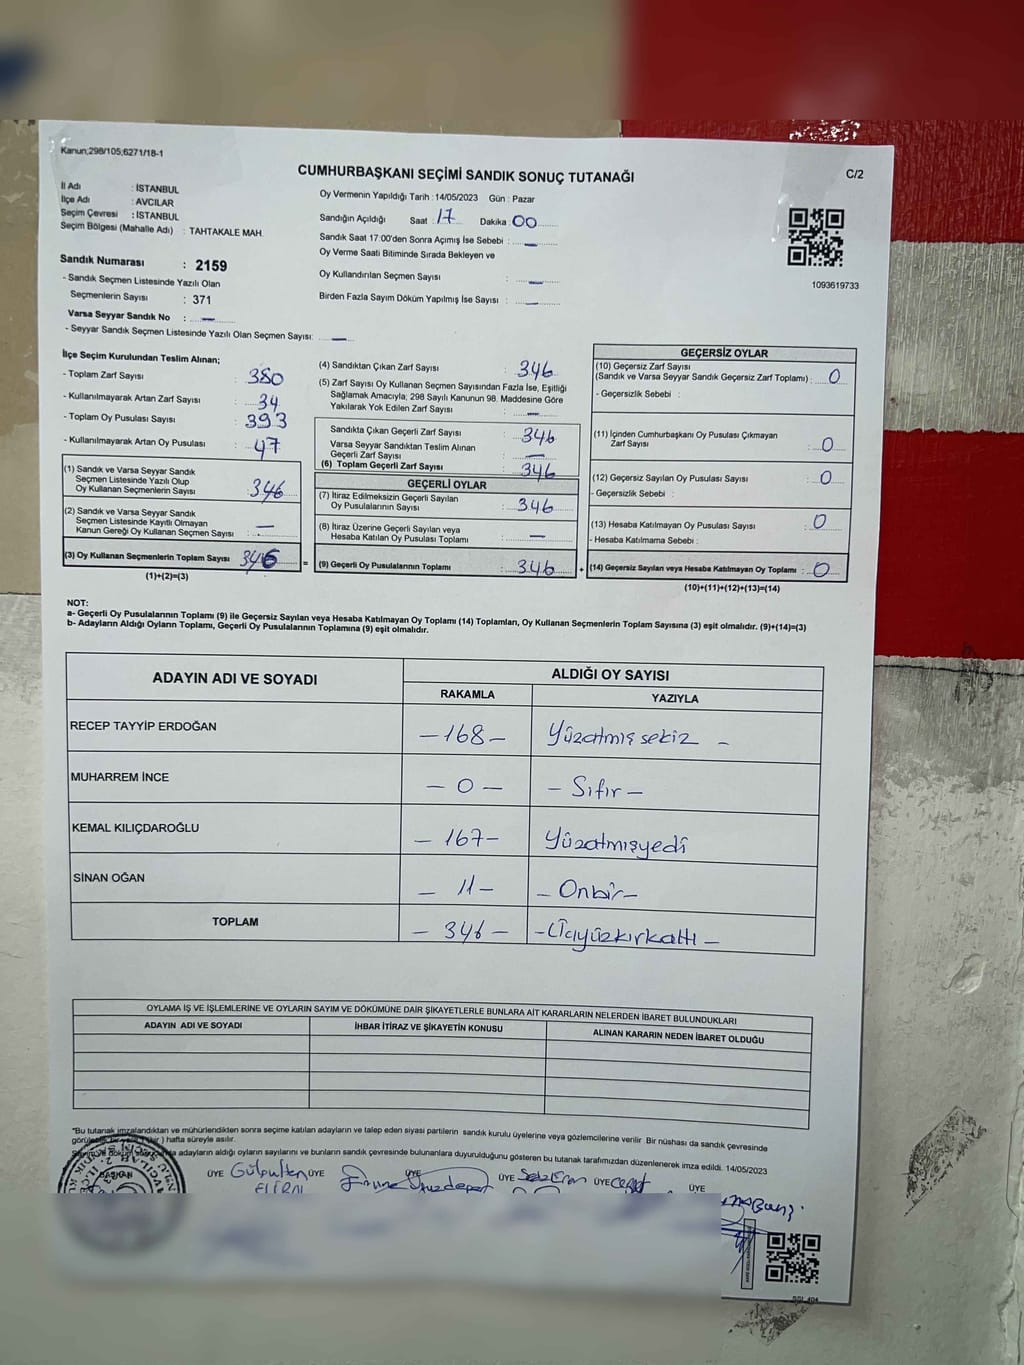 Kanun;298/105;6271/18-1
CUMHURBAŞKANI SEÇİMİ SANDIK SONUÇ TUTANAĞI
C/2
İl Adı : İSTANBUL
İlçe Adı : AVCILAR
Seçim Çevresi : İSTANBUL
Seçim Bölgesi (Mahalle Adı) : TAHTAKALE MAH.
Oy Vermenin Yapıldığı Tarih : 14/05/2023 Gün : Pazar
Sandığın Açıldığı Saat : 17 Dakika : 00
Sandık Saat 17:00'den Sonra Açımış İse Sebebi : —
Oy Verme Saati Bitiminde Sırada Bekleyen ve
Oy Kullandırılan Seçmen Sayısı : —
Birden Fazla Sayım Döküm Yapılmış İse Sayısı : —
1093619733
Sandık Numarası : 2159
- Sandık Seçmen Listesinde Yazılı Olan
Seçmenlerin Sayısı : 371
Varsa Seyyar Sandık No : —
- Seyyar Sandık Seçmen Listesinde Yazılı Olan Seçmen Sayısı: —
İlçe Seçim Kurulundan Teslim Alınan;
- Toplam Zarf Sayısı : 380
- Kullanılmayarak Artan Zarf Sayısı : 34
- Toplam Oy Pusulası Sayısı : 393
- Kullanılmayarak Artan Oy Pusulası : 47
(1) Sandık ve Varsa Seyyar Sandık
Seçmen Listesinde Yazılı Olup
Oy Kullanan Seçmenlerin Sayısı : 346
(2) Sandık ve Varsa Seyyar Sandık
Seçmen Listesinde Kayıtlı Olmayan
Kanun Gereği Oy Kullanan Seçmen Sayısı : —
(3) Oy Kullanan Seçmenlerin Toplam Sayısı : 346
(1)+(2)=(3)
=
(4) Sandıktan Çıkan Zarf Sayısı : 346
(5) Zarf Sayısı Oy Kullanan Seçmen Sayısından Fazla İse, Eşitliği
Sağlamak Amacıyla, 298 Sayılı Kanunun 98. Maddesine Göre
Yakılarak Yok Edilen Zarf Sayısı : —
Sandıkta Çıkan Geçerli Zarf Sayısı : 346
Varsa Seyyar Sandıktan Teslim Alınan
Geçerli Zarf Sayısı : —
(6) Toplam Geçerli Zarf Sayısı : 346
GEÇERLİ OYLAR
(7) İtiraz Edilmeksizin Geçerli Sayılan
Oy Pusulalarının Sayısı : 346
(8) İtiraz Üzerine Geçerli Sayılan veya
Hesaba Katılan Oy Pusulası Toplamı : —
(9) Geçerli Oy Pusulalarının Toplamı : 346
+
GEÇERSİZ OYLAR
(10) Geçersiz Zarf Sayısı
(Sandık ve Varsa Seyyar Sandık Geçersiz Zarf Toplamı) : 0
- Geçersizlik Sebebi :
(11) İçinden Cumhurbaşkanı Oy Pusulası Çıkmayan
Zarf Sayısı : 0
(12) Geçersiz Sayılan Oy Pusulası Sayısı : 0
- Geçersizlik Sebebi :
(13) Hesaba Katılmayan Oy Pusulası Sayısı : 0
- Hesaba Katılmama Sebebi :
(14) Geçersiz Sayılan veya Hesaba Katılmayan Oy Toplamı : 0
(10)+(11)+(12)+(13)=(14)
NOT:
a- Geçerli Oy Pusulalarının Toplamı (9) ile Geçersiz Sayılan veya Hesaba Katılmayan Oy Toplamı (14) Toplamları, Oy Kullanan Seçmenlerin Toplam Sayısına (3) eşit olmalıdır. (9)+(14)=(3)
b- Adayların Aldığı Oyların Toplamı, Geçerli Oy Pusulalarının Toplamına (9) eşit olmalıdır.
ADAYIN ADI VE SOYADI
ALDIĞI OY SAYISI
RAKAMLA YAZIYLA
RECEP TAYYİP ERDOĞAN —168— Yüzatmış sekiz —
MUHARREM İNCE — 0 — — Sıfır —
KEMAL KILIÇDAROĞLU — 167— Yüzatmışyedi
SİNAN OĞAN — 11— — Onbir—
TOPLAM — 346 — —Üçyüzkırkaltı —
OYLAMA İŞ VE İŞLEMLERİNE VE OYLARIN SAYIM VE DÖKÜMÜNE DAİR ŞİKAYETLERLE BUNLARA AİT KARARLARIN NELERDEN İBARET BULUNDUKLARI
ADAYIN ADI VE SOYADI İHBAR İTİRAZ VE ŞİKAYETİN KONUSU ALINAN KARARIN NEDEN İBARET OLDUĞU
"Bu tutanak imzalandıktan ve mühürlendikten sonra seçime katılan adayların ve talep eden siyasi partilerin sandık kurulu üyelerine veya gözlemcilerine verilir. Bir nüshası da sandık çevresinde
hafta süreyle asılır.
adayların aldığı oyların sayılarını ve bunların sandık çevresinde bulunanlara duyurulduğunu gösteren bu tutanak tarafımızdan düzenlenerek imza edildi. 14/05/2023
BAŞKAN ÜYE Gülsulten ÜYE ÜYE ÜYE ÜYE ÜYE